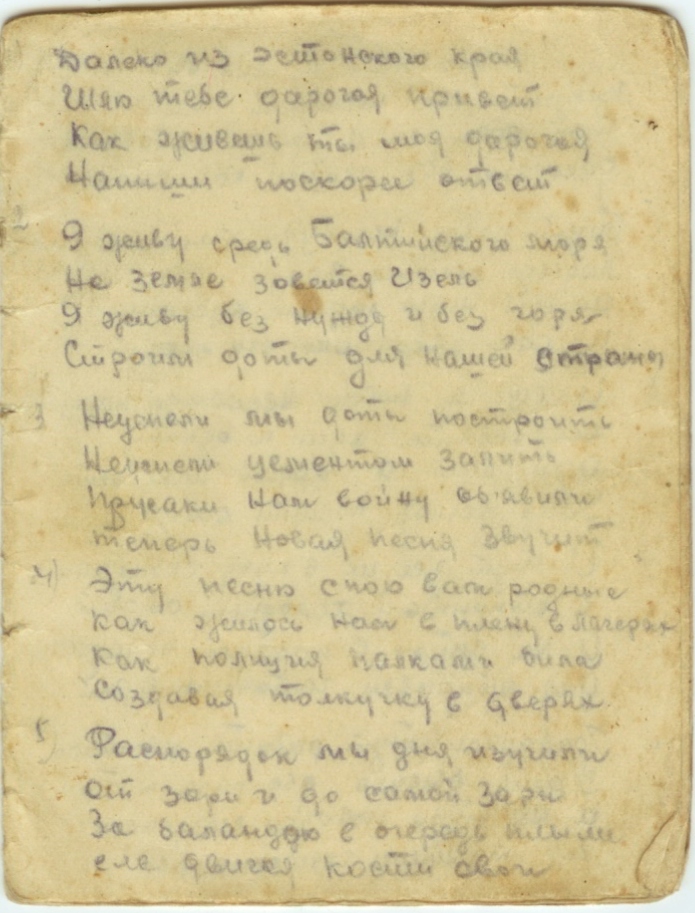 Далеко из эстонского края
Шлю тебе дарогая привет
Как живешь ты моя дарогая
Напиши поскорее ответ
2
Я живу средь Балтийского моря
На земле зовется Изель
Я живу без нужды и без горя
Строим доты для нашей страны
3 Неуспели мы доты построить
Неуспели цементом залить
Прусаки нам войну об'явили
теперь Новая песня звучит
4) Эту песню спою вам родные
как жилось нам в плену в лагерях
как полиция палками била
создавая толкучку в дверях.
5) Распорядок мы дня изучили
от зари и до самой зари
За баландою в очередь
еле двигая кости свои